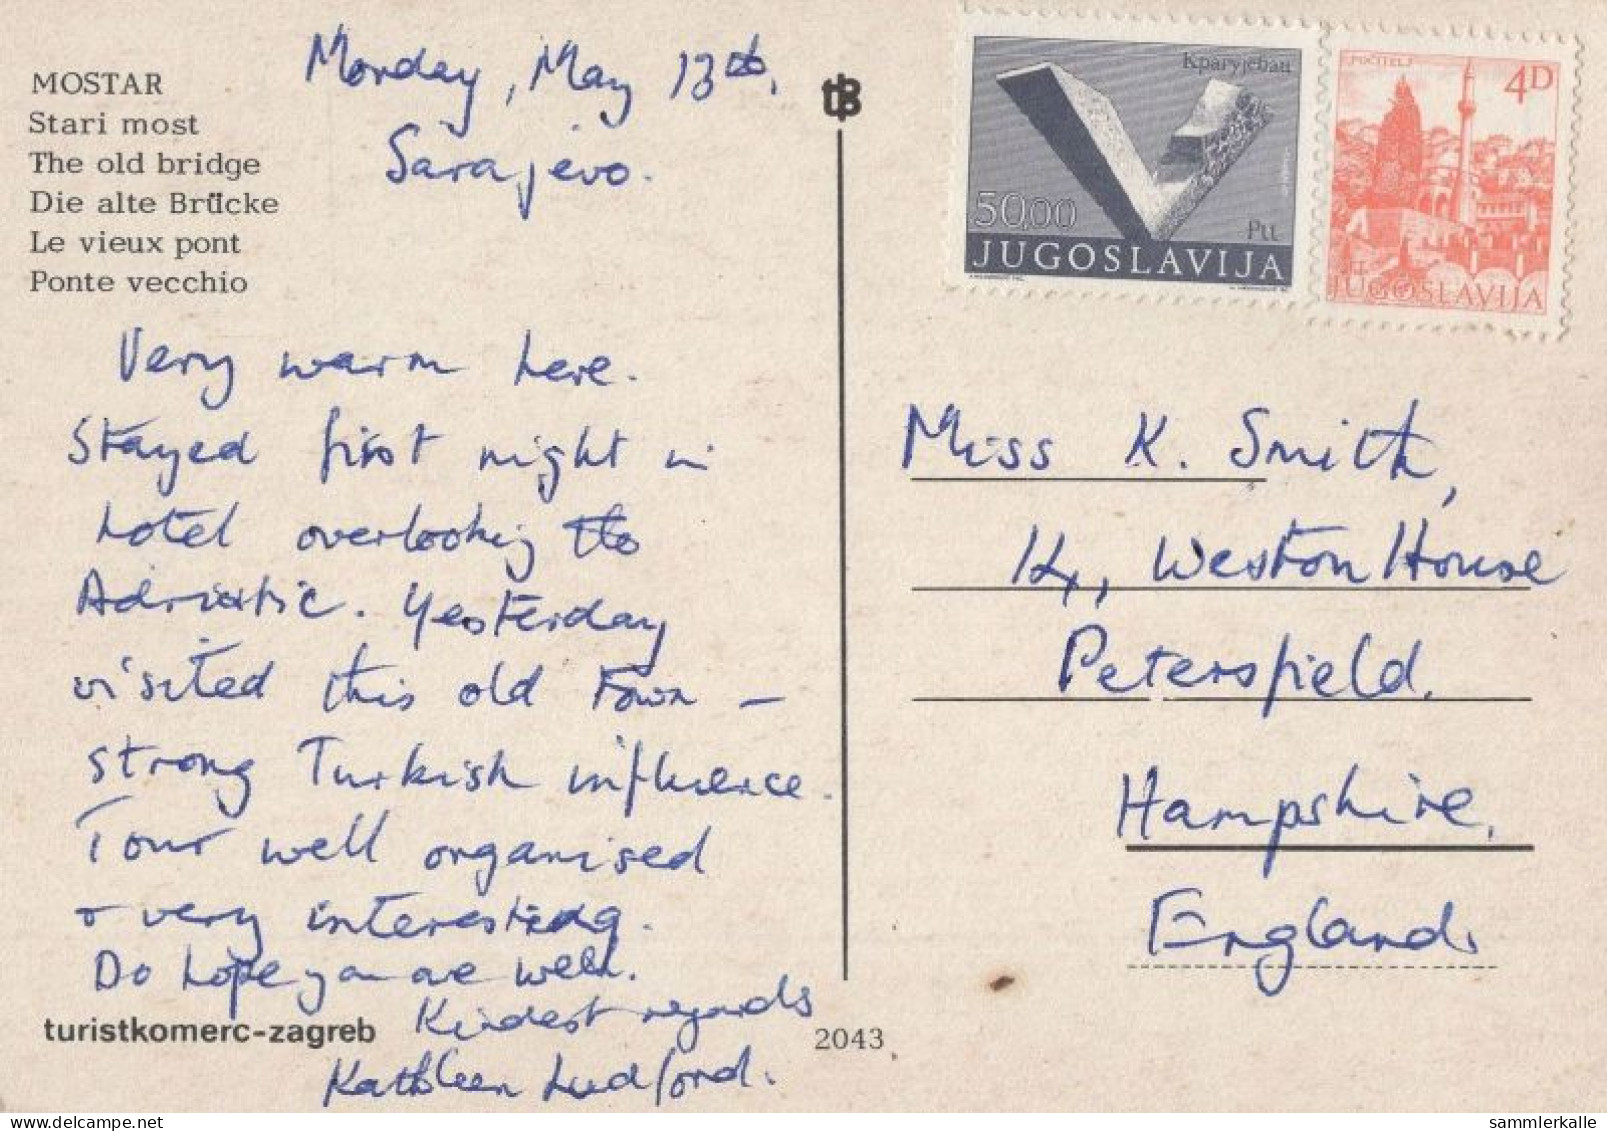 MOSTAR
Stari most
The old bridge
Die alte Brücke
Le vieux pont
Ponte vecchio
Monday, May 13th,
Sarajevo.
Very warm here.
Stayed first night in
hotel overlooking the
Adriatic. Yesterday
visited this old town –
strong Turkish influence.
Tour well organised
& very interesting.
Do hope you are well.
Kindest regards
Kathleen Ludford.
turistkomerc-zagreb
2043
tB
Kparyjebau
50,00
Ptt
JUGOSLAVIJA
POČITELJ
4D
JUGOSLAVIJA
Miss K. Smith,
14, Weston House
Petersfield.
Hampshire.
England.
sammlerkalle